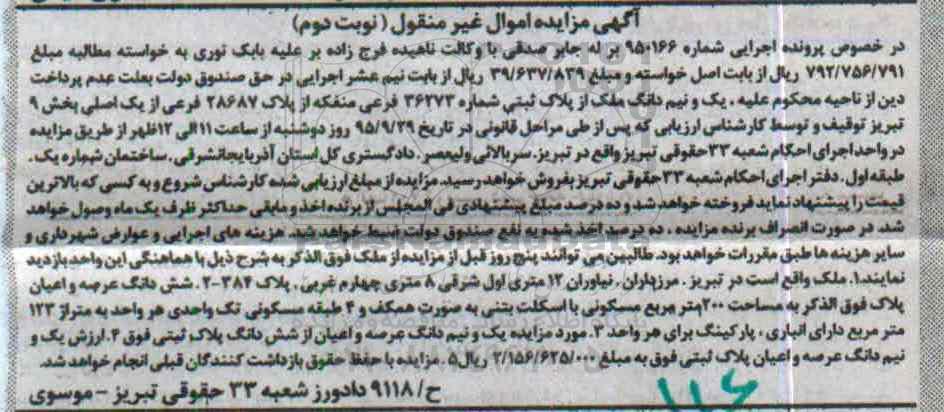 آگهی مزایده اموال غیر منقول (نوبت دوم)
در خصوص پرونده اجرایی شماره ۹۵۰۱۶۶ بر له جابر صدقی با وکالت ناهیده فرج زاده بر علیه بابک نوری به خواسته مطالبه مبلغ
۷۹۲/۷۵۶/۷۹۱ ریال از بابت اصل خواسته و مبلغ ۳۹/۶۳۷/۸۳۹ ریال از بابت نیم عشر اجرایی در حق صندوق دولت بعلت عدم پرداخت
دین از ناحیه محکوم علیه ، یک و نیم دانگ ملک از پلاک ثبتی شماره ۳۶۲۷۳ فرعی منفکه از پلاک ۲۸۶۸۷ فرعی از یک اصلی بخش ۹
تبریز توقیف و توسط کارشناس ارزیابی که پس از طی مراحل قانونی در تاریخ ۹۵/۹/۲۹ روز دوشنبه از ساعت ۱۱ الی ۱۲ ظهر از طریق مزایده
در واحد اجرای احکام شعبه ۳۳ حقوقی تبریز واقع در تبریز. سربالائی ولیعصر. دادگستری کل استان آذربایجانشرقی. ساختمان شماره یک.
طبقه اول. دفتر اجرای احکام شعبه ۳۳ حقوقی تبریز بفروش خواهد رسید. مزایده از مبلغ ارزیابی شده کارشناس شروع و به کسی که بالاترین
قیمت را پیشنهاد نماید فروخته خواهد شد و ده درصد مبلغ پیشنهادی فی المجلس از برنده اخذ و مابقی حداکثر ظرف یک ماه وصول خواهد
شد. در صورت انصراف برنده مزایده ، ده درصد اخذ شده به نفع صندوق دولت ضبط خواهد شد. هزینه های اجرایی و عوارض شهرداری و
سایر هزینه ها طبق مقررات خواهد بود. طالبین می توانند پنج روز قبل از مزایده از ملک فوق الذکر به شرح ذیل با هماهنگی این واحد بازدید
نمایند.۱. ملک واقع است در تبریز . مرزداران . نیاوران ۱۲ متری اول شرقی ۸ متری چهارم غربی . پلاک ۳۸۴-۲. شش دانگ عرصه و اعیان
پلاک فوق الذکر به مساحت ۲۰۰متر مربع مسکونی با اسکلت بتنی به صورت همکف و ۴ طبقه مسکونی تک واحدی هر واحد به متراژ ۱۲۳
متر مربع دارای انباری ، پارکینگ برای هر واحد ۳. مورد مزایده یک و نیم دانگ عرصه و اعیان از شش دانگ پلاک ثبتی فوق ۴. ارزش یک و
نیم دانگ عرصه و اعیان پلاک ثبتی فوق به مبلغ ۲/۱۵۶/۶۲۵/۰۰۰ ریال ۵. مزایده با حفظ حقوق بازداشت کنندگان قبلی انجام خواهد شد.
ح/۹۱۱۸ دادورز شعبه ۳۳ حقوقی تبریز - موسوی